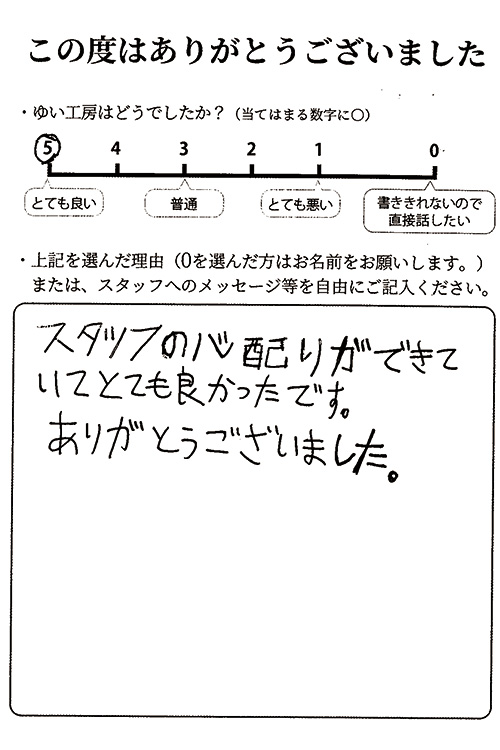 この度はありがとうございました
・ゆい工房はどうでしたか？（当てはまる数字に○）
5 4 3 2 1 0
とても良い 普通 とても悪い 書ききれないので
直接話したい
・上記を選んだ理由（0を選んだ方はお名前をお願いします。）
または、スタッフへのメッセージ等を自由にご記入ください。
スタッフの心配りができて
いてとても良かったです。
ありがとうございました。